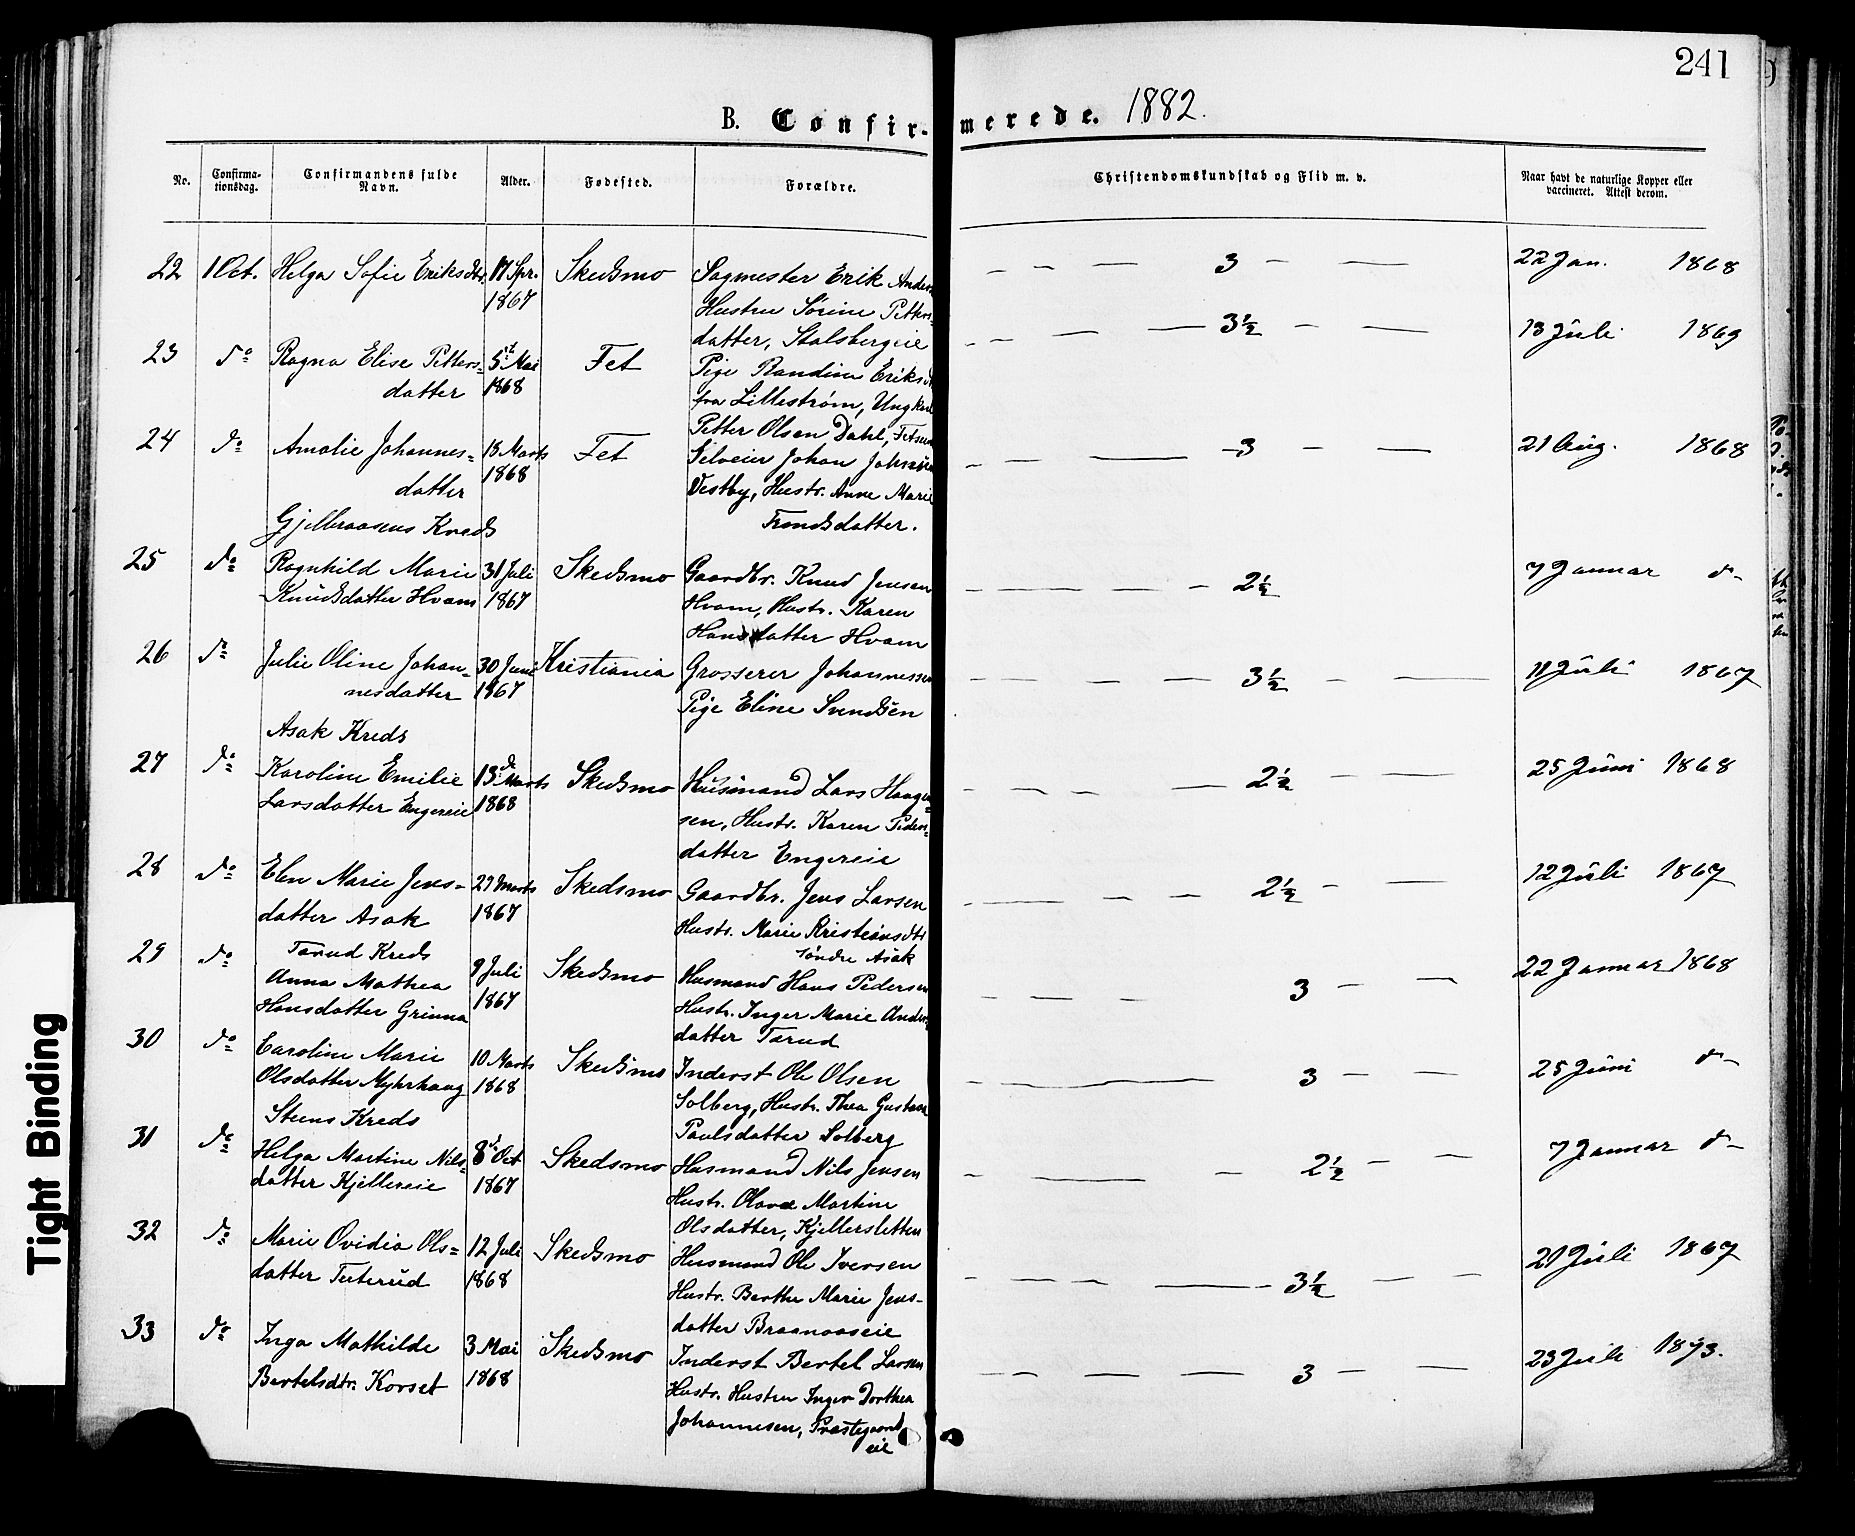 241
B. Confirmerede. 1882.
No.
Confirmationsdag.
Confirmandens fulde Navn.
Alder.
Fødested.
Forældre.
Christendomskundskab og Flid m. v.
Naar havt de naturlige Kopper eller vaccineret. Attest derom.
22 1 Oct. Helga Sofie Eriksdtr. 17 Spr. 1867 Skedsmo
Sagmester Erik Anders
Hustru Sørine Petters-
datter, Stalsbergeie
3 22 Jan. 1868
23 do Ragna Elise Petters-
datter
5t Mai 1868 Fet
Pige Randine Eriksd
fra Lillestrøm, Ungkarl
Petter Olsen Dahl, Fetsund
3½ 13 Juli 1869
24 do Amalie Johannes-
datter
13 Marts 1868 Fet
Selveier Johan Johnsen
Vestby, Hustr. Anne Marie
Trondsdatter.
3 21 Aug. 1868
Gjelleraasens Kreds
25 do Ragnhild Marie
Knudsdatter Hvam
31 Juli 1867 Skedsmo
Gaardbr. Knud Jensen
Hvam, Hustr. Karen
Hansdatter Hvam
2½ 7 Januar d-
26 do Julie Oline Johan-
nesdatter
30 Juni 1867 Kristiania
Grosserer Johannessen
Pige Eline Svendsen
3½ 11 Juli 1867
Asak Kreds
27 do Karoline Emilie
Larsdatter Engereie
13de Marts 1868 Skedsmo
Husmand Lars Haagen-
sen, Hustr. Karen Peders-
datter Engereie
2½ 25 Juni 1868
28 do Elen Marie Jens-
datter Asak
29 Marts 1867 Skedsmo
Gaardbr. Jens Larsen
Hustr. Marie Kristiansdtr
Søndre Asak
2½ 12 Juli 1867
Tærud Kreds
29 do Anna Mathea
Hansdatter Grinna
9 Juli 1867 Skedsmo
Husmand Hans Pedersen
Hustr. Inger Marie Anders
datter Tærud
3 22 Januar 1868
30 do Caroline Marie
Olsdatter Myhrhaug
10 Marts 1868 Skedsmo
Inderst Ole Olsen
Solberg, Hustr. Thea Gustava
Paulsdatter Solberg
3 25 Juni d-
Steens Kreds
31 do Helga Martine Nils-
datter Kjellereie
8t Oct 1867 Skedsmo
Husmand Nils Jensen
Hustr. Olava Martine
Olsdatter, Kjellersletten
2½ 7 Januar d-
32 do Marie Ovidia Ols-
datter Tuterud
12 Juli 1868 Skedsmo
Husmand Ole Iversen
Hustr. Berthe Marie Jens-
datter Braanaaseie
3½ 21 Juli 1867
33 do Inga Mathilde
Bertelsdtr. Korset
3 Mai 1868 Skedsmo
Inderst Bertel Larsen
Hustr. Hustru Inger Dorthea
Johannesen, Præstegaard
eie
3 23 Juli 1873.
Tight Binding